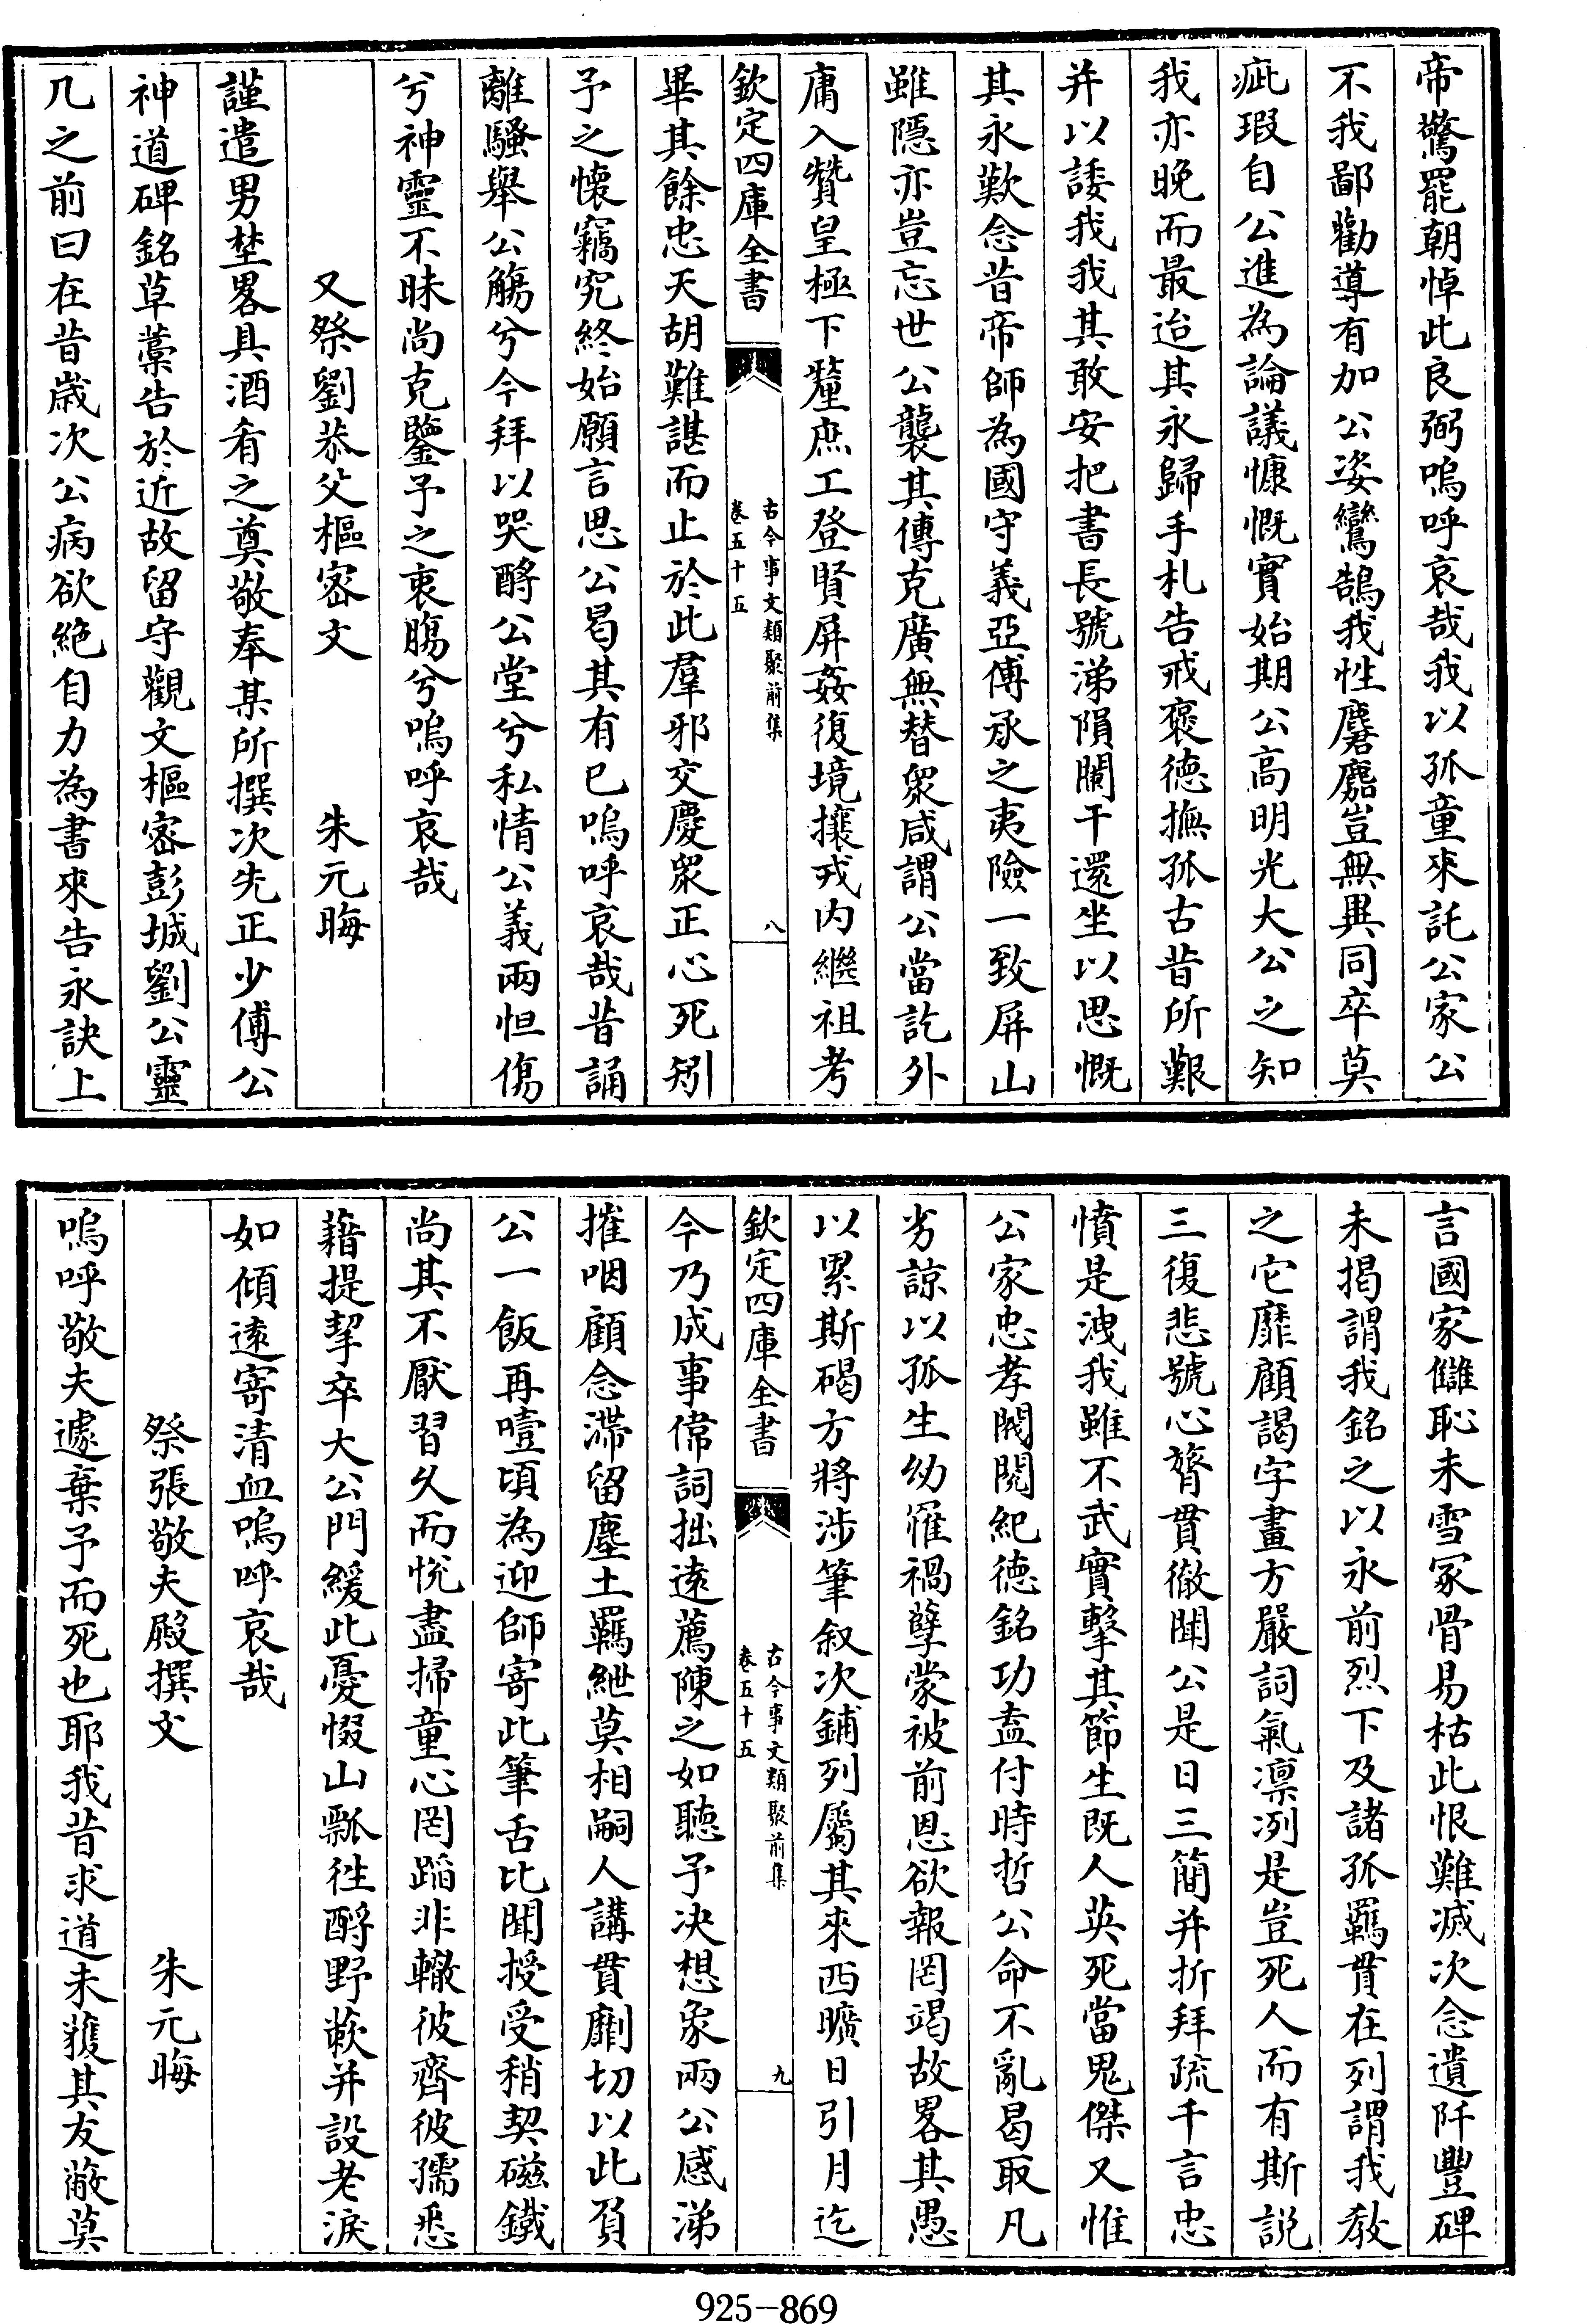 帝驚罷朝悼此良弼嗚呼哀哉我以孤童來託公家公
不我鄙勸導有加公姿鸞鵠我性麏麚豈無異同卒莫
疵瑕自公進為論議慷慨實始期公高明光大公之知
我亦晩而最迨其永歸手札告戒褒德撫孤古昔所艱
并以諉我我其敢安把書長號涕隕闌干還坐以思慨
其永歎念昔帝師為國守義亞傅承之夷險一致屏山
雖隱亦豈忘世公襲其傳克廣無替衆咸謂公當訖外
庸入贊皇極下釐庶工登賢屏姦復境攘戎内繼祖考
欽定四庫全書
古今事文類聚前集
卷五十五
八
畢其餘忠天胡難諶而止於此羣邪交慶衆正心死矧
予之懷竊究終始願言思公曷其有已嗚呼哀哉昔誦
離騷舉公觴兮今拜以哭酹公堂兮私情公義兩怛傷
兮神靈不昧尚克鑒予之衷膓兮嗚呼哀哉
又祭劉恭父樞密文
朱元晦
謹遣男埜畧具酒肴之奠敬奉某所撰次先正少傅公
神道碑銘草藁告於近故留守觀文樞密彭城劉公靈
几之前曰在昔歲次公病欲絶自力為書來告永訣上
言國家讎恥未雪冢骨易枯此恨難滅次念遺阡豐碑
未揭謂我銘之以永前烈下及諸孤羈貫在列謂我教
之它靡顧謁字畫方嚴詞氣凛冽是豈死人而有斯説
三復悲號心膂貫徹聞公是日三簡并折拜疏千言忠
憤是洩我雖不武實擊其節生既人英死當鬼傑又惟
公家忠孝閥閱紀德銘功盍付時哲公命不亂曷取凡
劣諒以孤生幼罹禍孽蒙被前恩欲報罔竭故畧其愚
以累斯碣方將涉筆叙次鋪列屬其來西曠日引月迄
欽定四庫全書
古今事文類聚前集
卷五十五
九
今乃成事偉詞拙遠薦陳之如聽予决想象兩公感涕
摧咽顧念滯留塵土羈紲莫相嗣人講貫劘切以此負
公一飯再噎頃為迎師寄此筆舌比聞授受稍契磁鐵
尚其不厭習久而恱盡掃童心罔蹈非轍彼齊彼孺悉
藉提挈卒大公門緩此憂惙山瓢徃酹野蔌并設老淚
如傾逺寄清血嗚呼哀哉
祭張敬夫殿撰文
朱元晦
嗚呼敬夫遽棄予而死也耶我昔求道未獲其友蔽莫
925-869